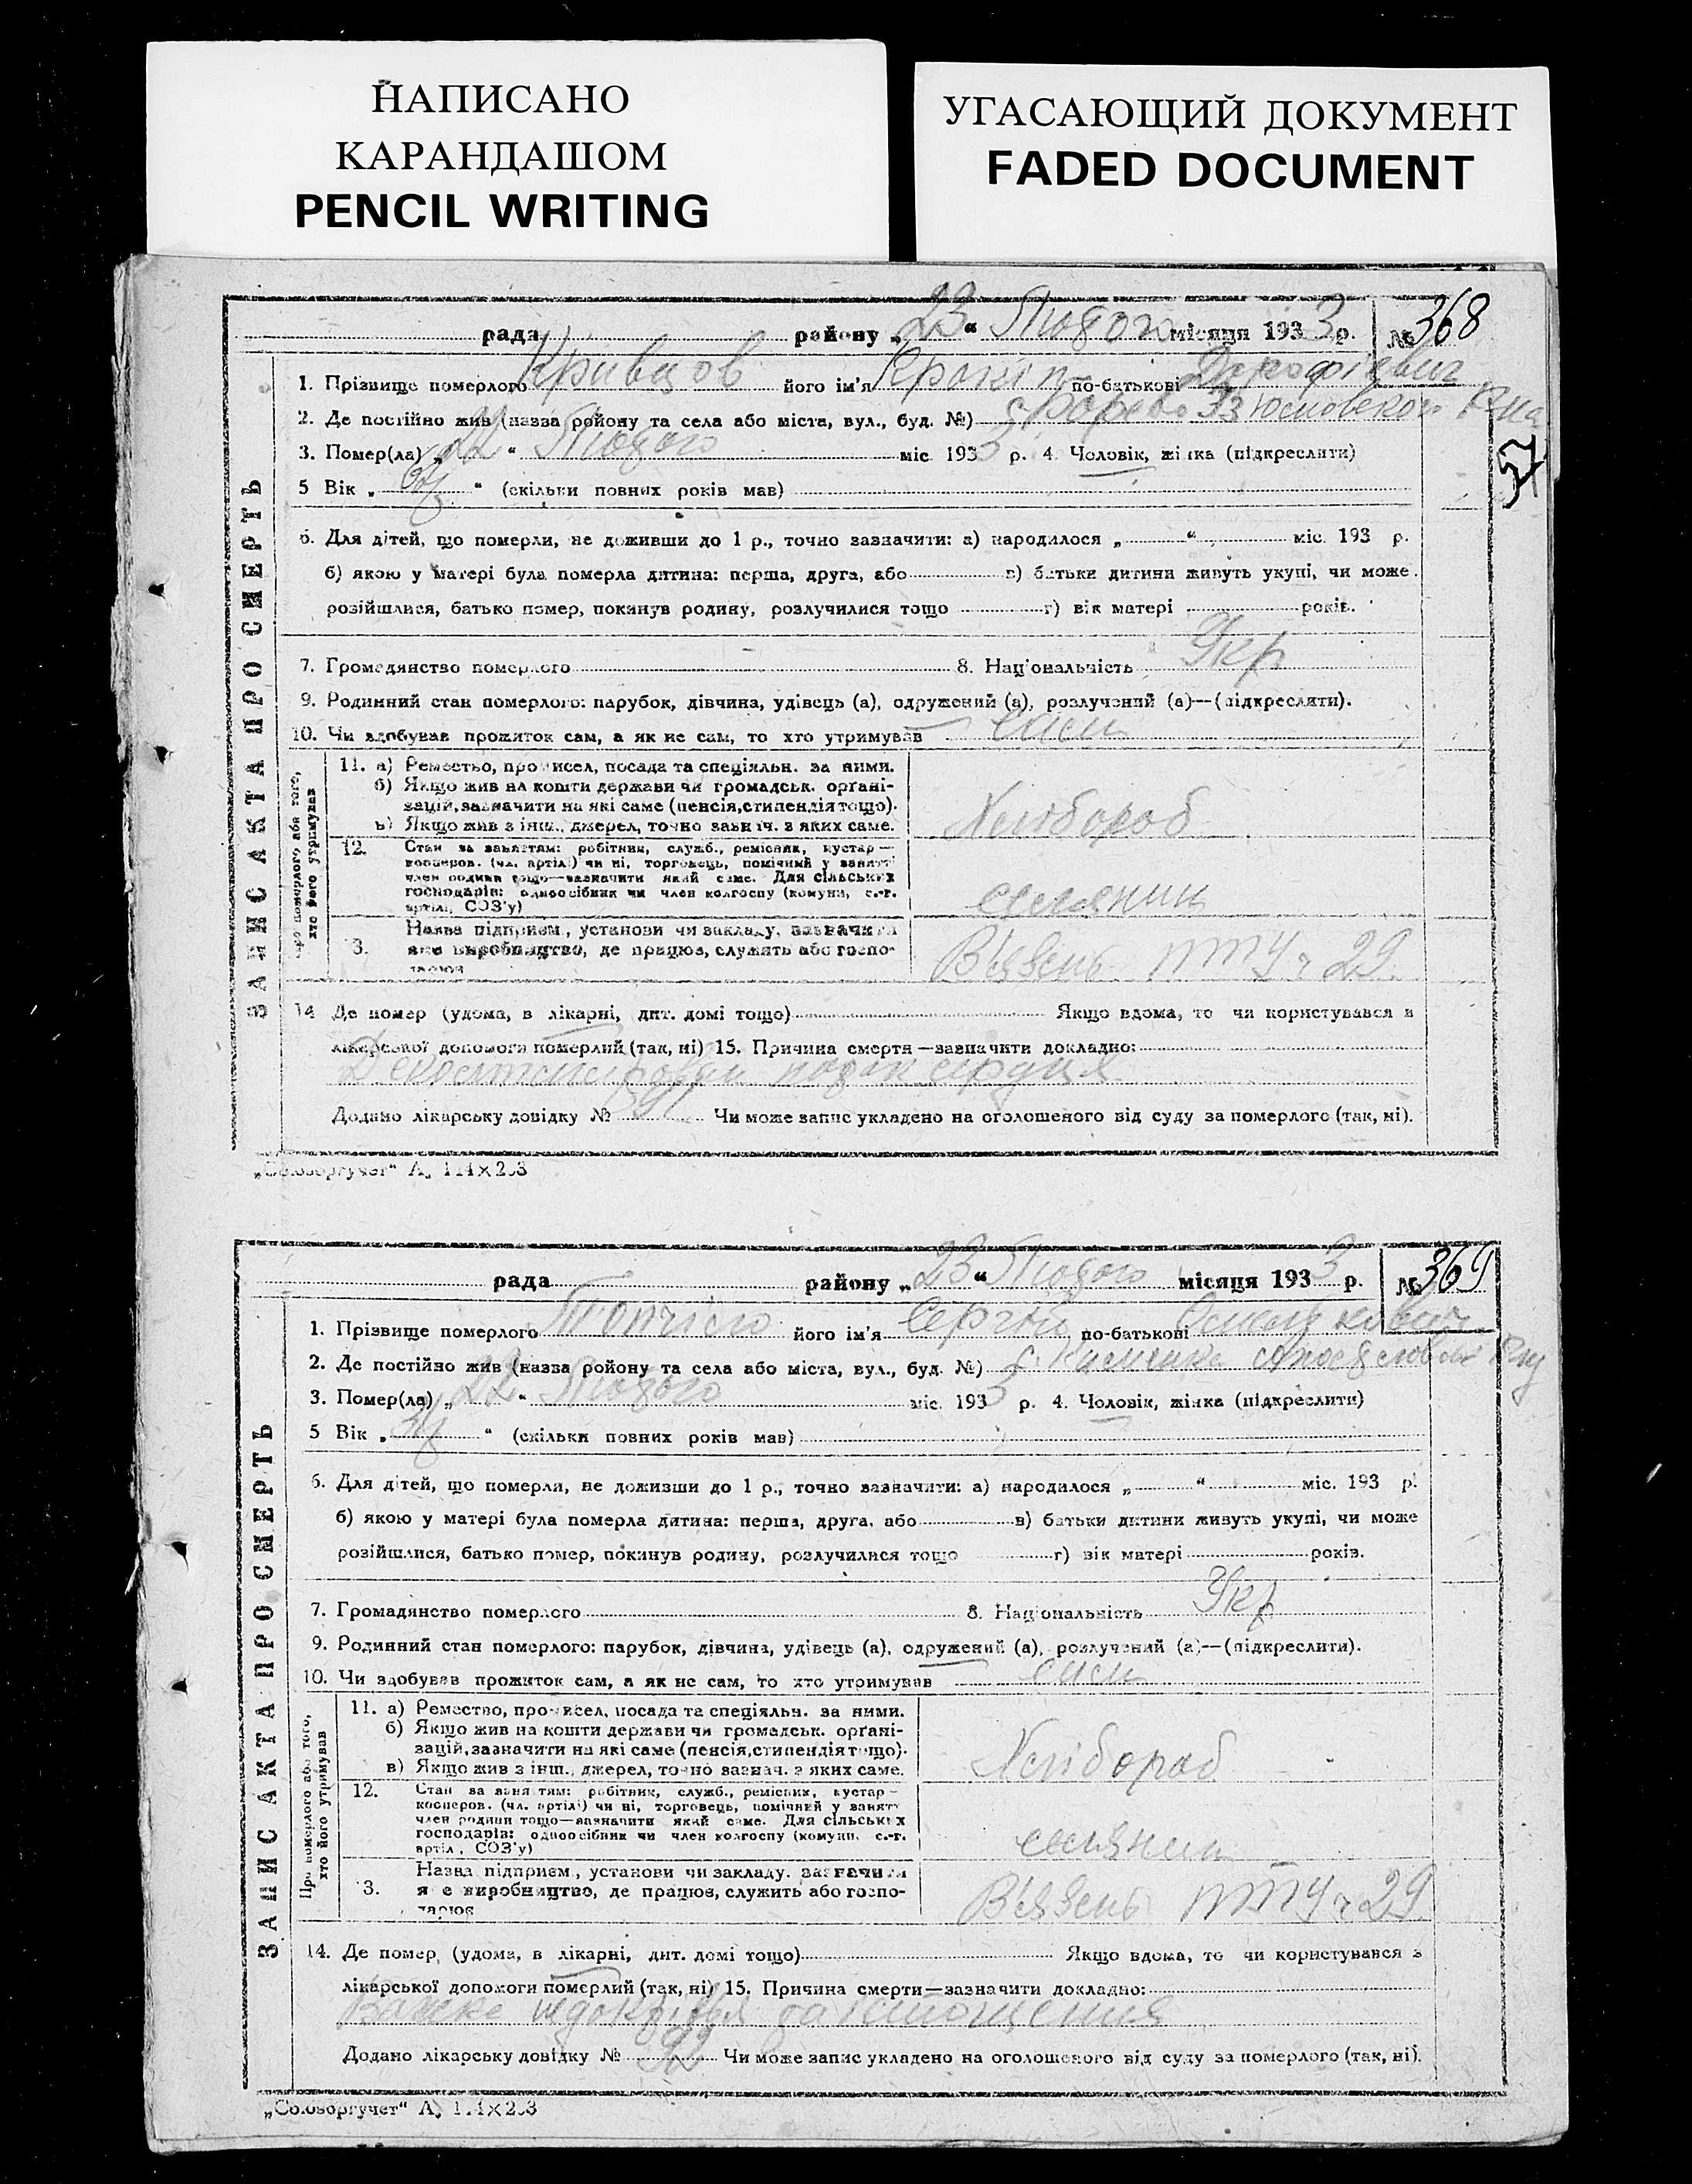 НАПИСАНО
КАРАНДАШОМ
PENCIL WRITING
УГАСАЮЩИЙ ДОКУМЕНТ
FADED DOCUMENT
рада району „23“ Лютого місяця 1933 р. № 368
1. Прізвище померлого Кривцов його ім'я по-батькові
2. Де постійно жив (назва району та села або міста, вул., буд. №)
3. Помер(ла) „22“ Лютого міс. 1933 р. 4. Чоловік, жінка (підкреслити)
5 Вік „ “ (скільки повних років мав)
6. Для дітей, що померли, не доживши до 1 р., точно зазначити: а) народилося „ “ міс. 193 р.
б) якою у матері була померла дитина: перша, друга, або в) батьки дитини живуть укупі, чи може
розійшлися, батько помер, покинув родину, розлучилися тощо г) вік матері років.
7. Громадянство померлого 8. Національність Укр
9. Родинний стан померлого: парубок, дівчина, удівець (а), одружений (а), розлучений (а)—(підкреслити).
10. Чи здобував прожиток сам, а як не сам, то хто утримував сам
ЗАПИС АКТА ПРО СМЕРТЬ
Про померлого або того,
хто його утримував
11. а) Ремество, промисел, посада та спеціяльн. за ними.
б) Якщо жив на кошти держави чи громадськ. орґані-
зацій, зазначити на які саме (пенсія, стипендія тощо).
в) Якщо жив з інш. джерел, точно зазнач. з яких саме.
Хлібороб
12. Стан за заняттям: робітник, служб., ремісник, кустар—
кооперов. (чл. артілі) чи ні, торговець, помічний у занятті
член родини тощо—зазначити який саме. Для сільських
господарів: одноосібник чи член колгоспу (комуни, с.-г.
артіл., СОЗ'у)
селянин
13. Назва підприєм., установи чи закладу, зазначити
яке виробництво, де працює, служить або госпо-
дарює
Вʼязень 29
14. Де помер (удома, в лікарні, дит. домі тощо) Якщо вдома, то чи користувався з
лікарської допомоги померлий (так, ні) 15. Причина смерти—зазначити докладно:
серця
Додано лікарську довідку № 91 Чи може запис укладено на оголошеного від суду за померлого (так, ні).
„Союзоргучет“ А
рада району „23“ Лютого місяця 1933 р. № 369
1. Прізвище померлого його ім'я Сергій по-батькові
2. Де постійно жив (назва району та села або міста, вул., буд. №)
3. Помер(ла) „22“ Лютого міс. 1933 р. 4. Чоловік, жінка (підкреслити)
5 Вік „ “ (скільки повних років мав)
6. Для дітей, що померли, не доживши до 1 р., точно зазначити: а) народилося „ “ міс. 193 р.
б) якою у матері була померла дитина: перша, друга, або в) батьки дитини живуть укупі, чи може
розійшлися, батько помер, покинув родину, розлучилися тощо г) вік матері років.
7. Громадянство померлого 8. Національність Укр
9. Родинний стан померлого: парубок, дівчина, удівець (а), одружений (а), розлучений (а)—(підкреслити).
10. Чи здобував прожиток сам, а як не сам, то хто утримував сам
ЗАПИС АКТА ПРО СМЕРТЬ
Про померлого або того,
хто його утримував
11. а) Ремество, промисел, посада та спеціяльн. за ними.
б) Якщо жив на кошти держави чи громадськ. орґані-
зацій, зазначити на які саме (пенсія, стипендія тощо).
в) Якщо жив з інш. джерел, точно зазнач. з яких саме.
Хлібороб
12. Стан за заняттям: робітник, служб., ремісник, кустар—
кооперов. (чл. артілі) чи ні, торговець, помічний у занятті
член родини тощо—зазначити який саме. Для сільських
господарів: одноосібник чи член колгоспу (комуни, с.-г.
артіл., СОЗ'у)
селянин
13. Назва підприєм., установи чи закладу, зазначити
яке виробництво, де працює, служить або госпо-
дарює
Вʼязень 29
14. Де помер (удома, в лікарні, дит. домі тощо) Якщо вдома, то чи користувався з
лікарської допомоги померлий (так, ні) 15. Причина смерти—зазначити докладно:
Додано лікарську довідку № 92 Чи може запис укладено на оголошеного від суду за померлого (так, ні).
„Союзоргучет“ А